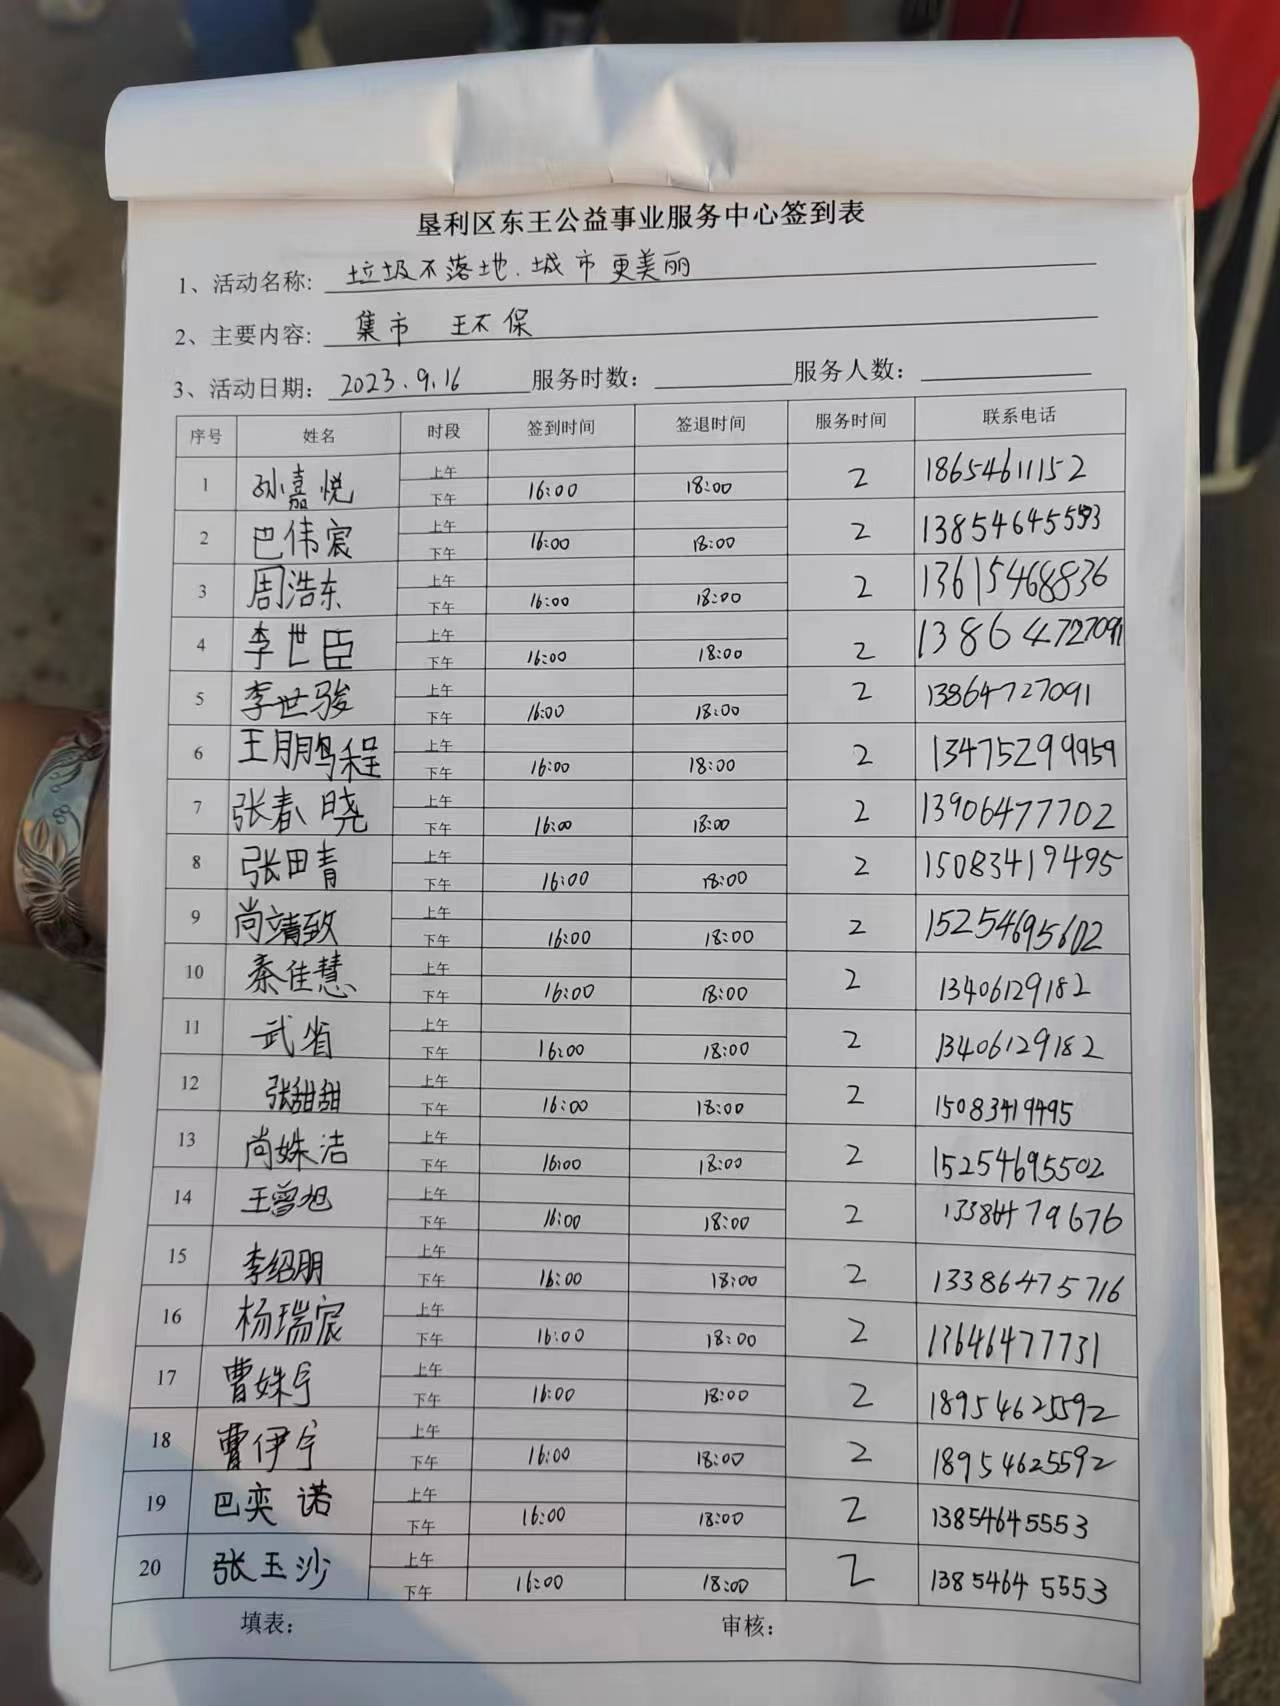 垦利区东王公益事业服务中心签到表
1、活动名称: 垃圾不落地.城市更美丽
2、主要内容: 集市 王不保
3、活动日期: 2023.9.16 服务时数: 服务人数:
序号 姓名 时段 签到时间 签退时间 服务时间 联系电话
1 孙嘉悦 上午 下午 16:00 18:00 2 18654611152
2 巴伟宸 上午 下午 16:00 18:00 2 13854645553
3 周浩东 上午 下午 16:00 18:00 2 13615468836
4 李世臣 上午 下午 16:00 18:00 2 13864727091
5 李世骏 上午 下午 16:00 18:00 2 13864727091
6 王鹏程 上午 下午 16:00 18:00 2 13475299959
7 张春晓 上午 下午 16:00 18:00 2 13906477702
8 张田青 上午 下午 16:00 18:00 2 15083419495
9 尚靖致 上午 下午 16:00 18:00 2 15254695602
10 秦佳慧 上午 下午 16:00 18:00 2 13406129182
11 武省 上午 下午 16:00 18:00 2 13406129182
12 张甜甜 上午 下午 16:00 18:00 2 15083419495
13 尚姝洁 上午 下午 16:00 18:00 2 15254695502
14 王曾旭 上午 下午 16:00 18:00 2 13386479676
15 李绍朋 上午 下午 16:00 18:00 2 13386475716
16 杨瑞宸 上午 下午 16:00 18:00 2 13646477731
17 曹姝宁 上午 下午 16:00 18:00 2 18954625592
18 曹伊宁 上午 下午 16:00 18:00 2 18954625592
19 巴奕诺 上午 下午 16:00 18:00 2 13854645553
20 张玉沙 上午 下午 16:00 18:00 2 13854645553
填表: 审核: